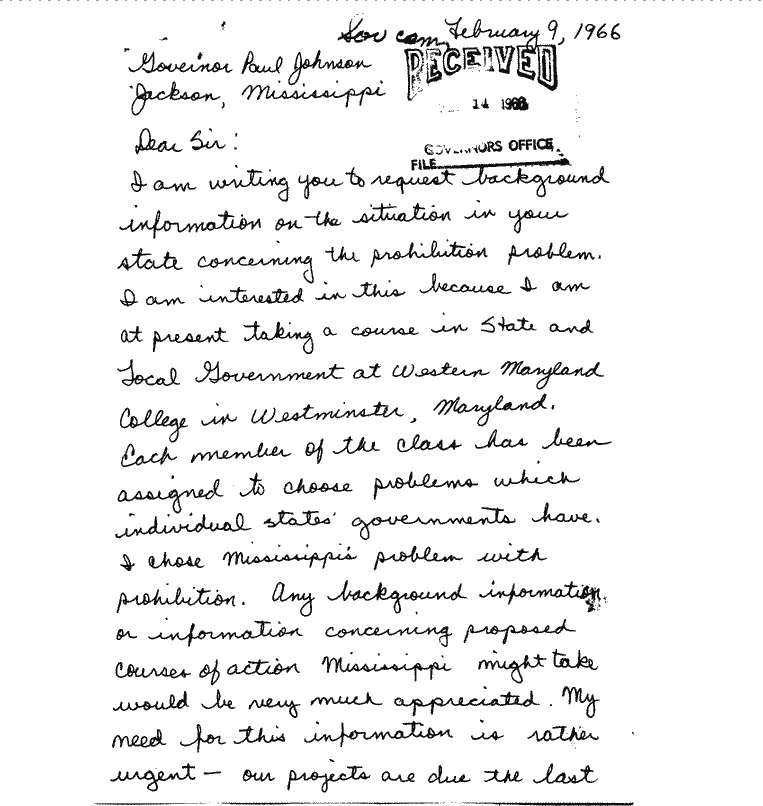 Sov com February 9, 1966
Governor Paul Johnson
Jackson, Mississippi
RECEIVED
14 1966
GOVERNORS OFFICE
FILE
Dear Sir:
I am writing you to request background
information on the situation in your
state concerning the prohibition problem.
I am interested in this because I am
at present taking a course in State and
Local Government at Western Maryland
College in Westminster, Maryland.
Each member of the class has been
assigned to choose problems which
individual states' governments have.
I chose Mississippi's problem with
prohibition. Any background information
or information concerning proposed
courses of action Mississippi might take
would be very much appreciated. My
need for this information is rather
urgent — our projects are due the last